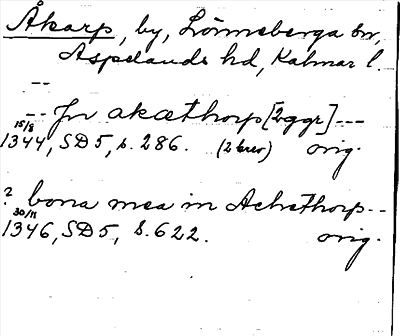 Åkarp, by, Lönneberga sn,
Aspelands hd, Kalmar l.
--
-- Jn akæthorp [2ggr] ---
15/8
1344, SD5, s. 286. (2 brev) orig.
? bona mea in Achethorp --
30/11
1346, SD5, s. 622. orig.